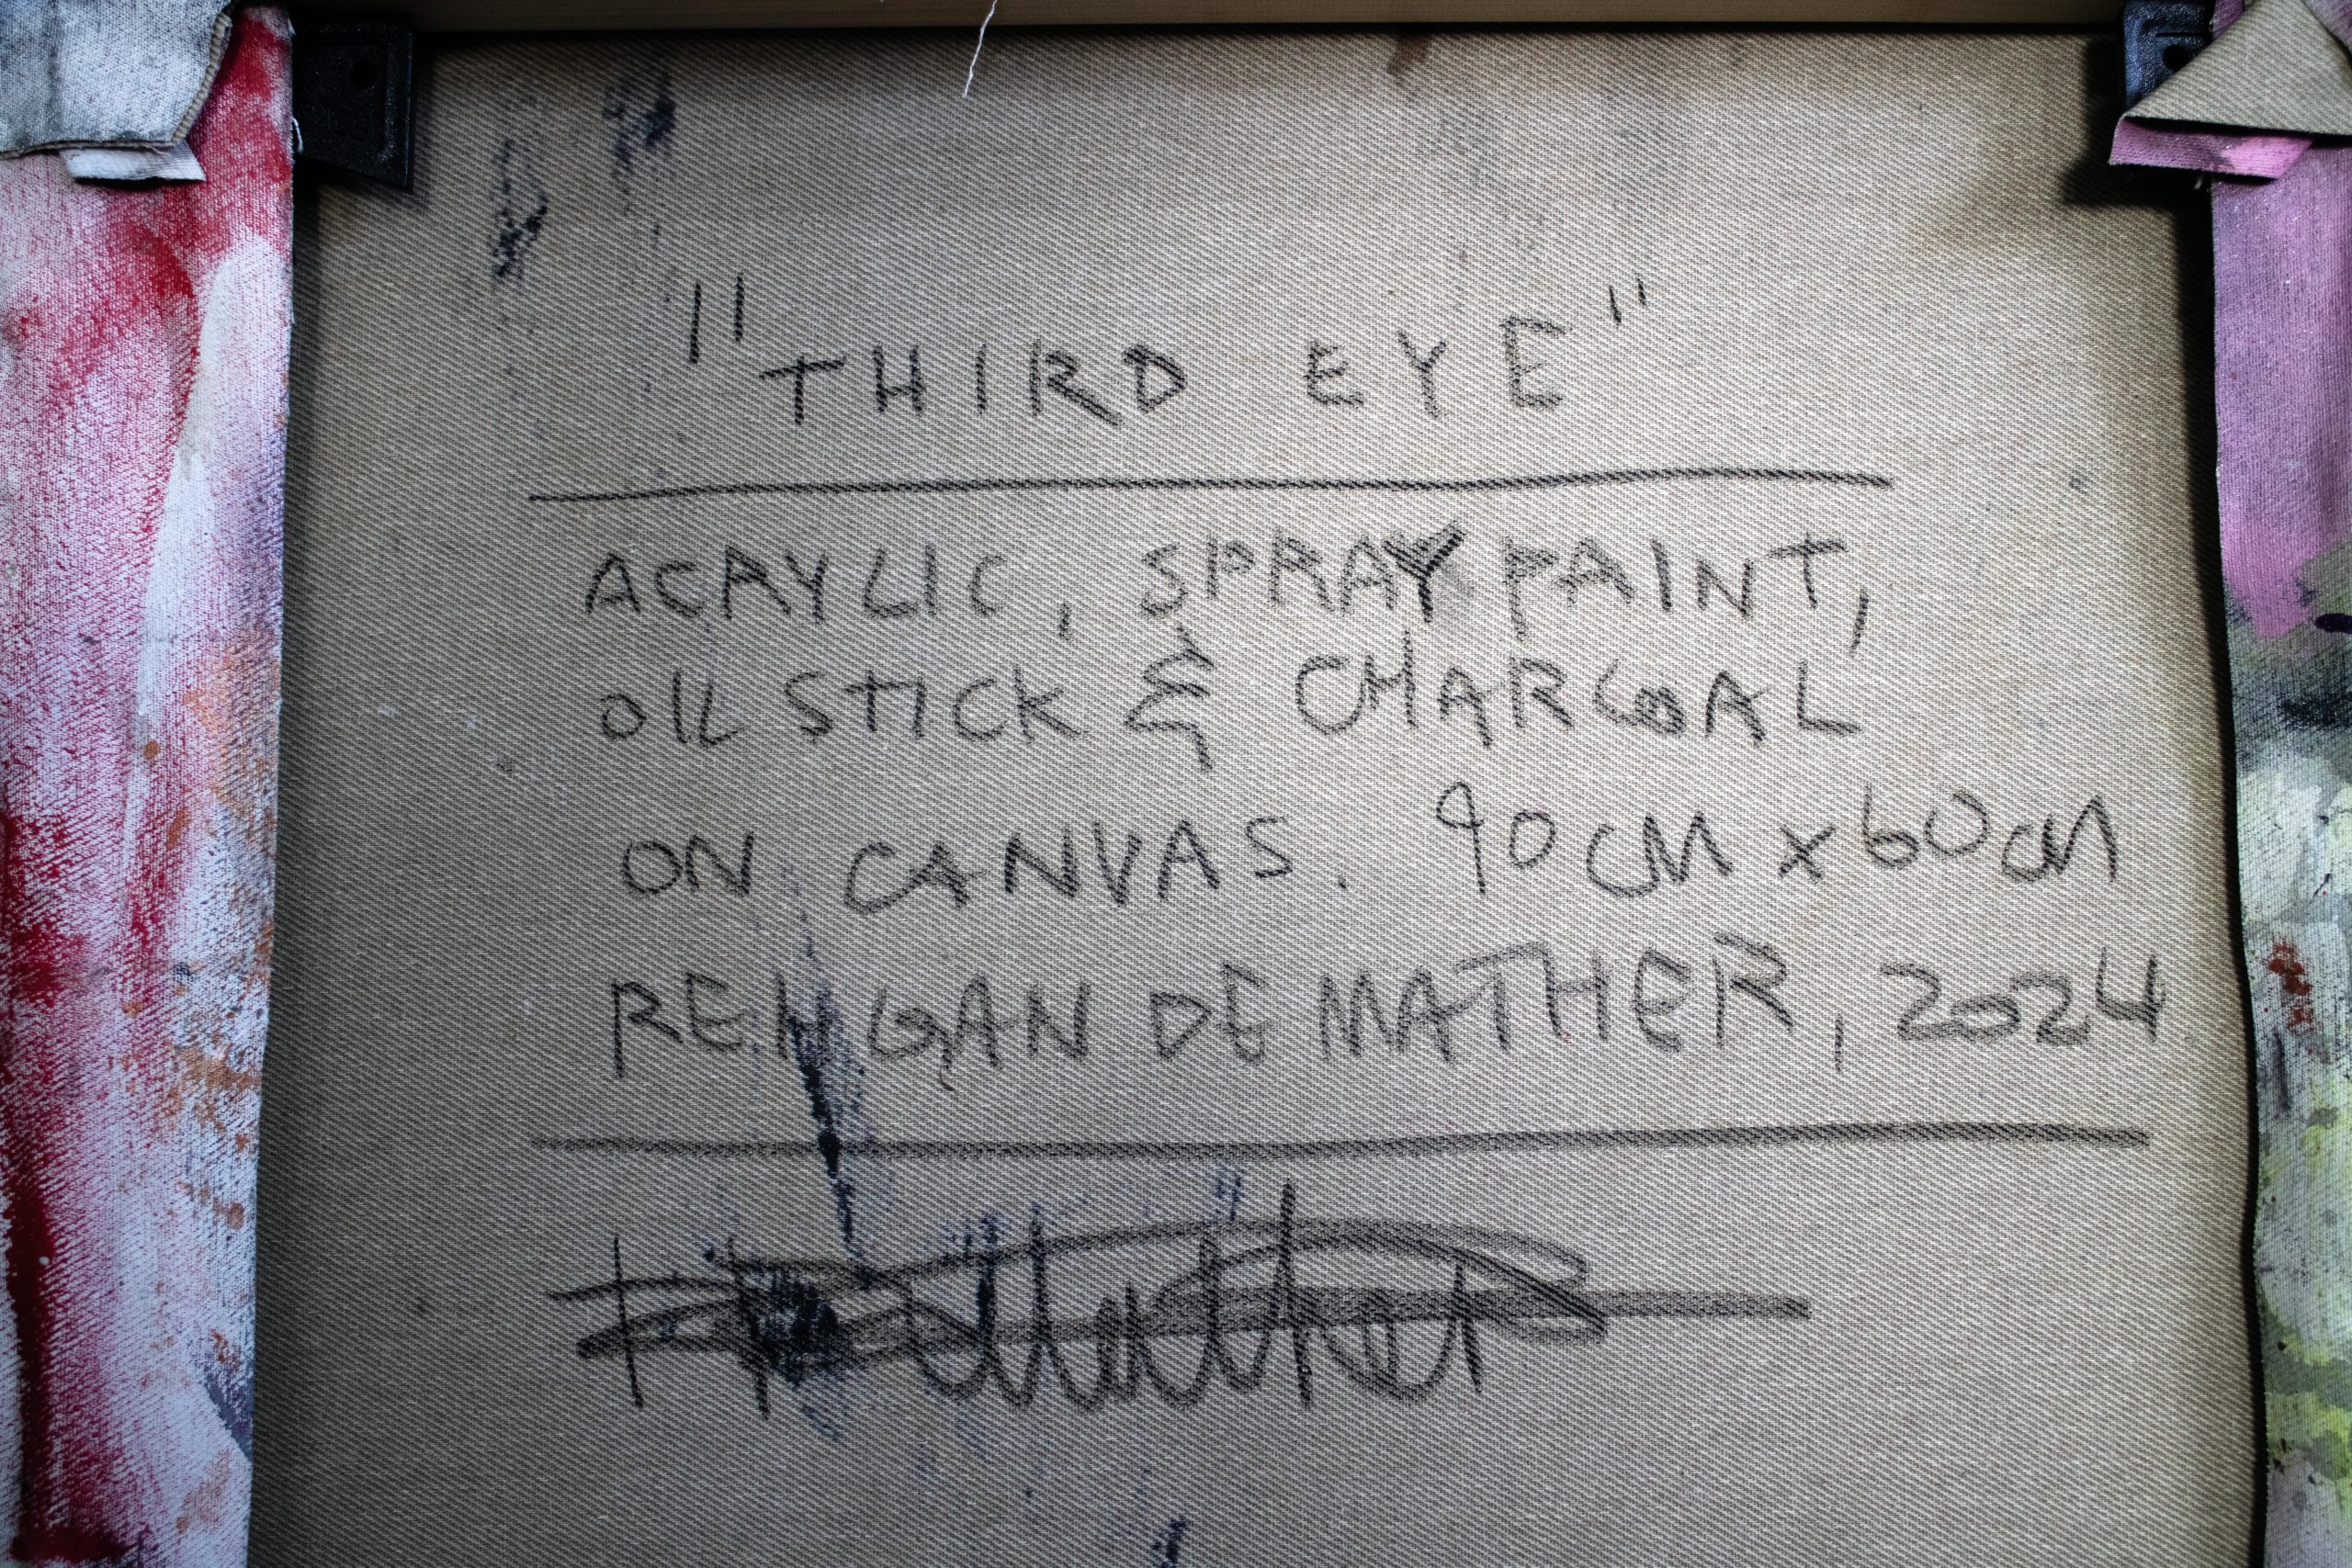 "THIRD EYE"
ACRYLIC, SPRAY PAINT,
OIL STICK & CHARCOAL
ON CANVAS. 90CM x 60CM
REHGAN DE MATHER, 2024